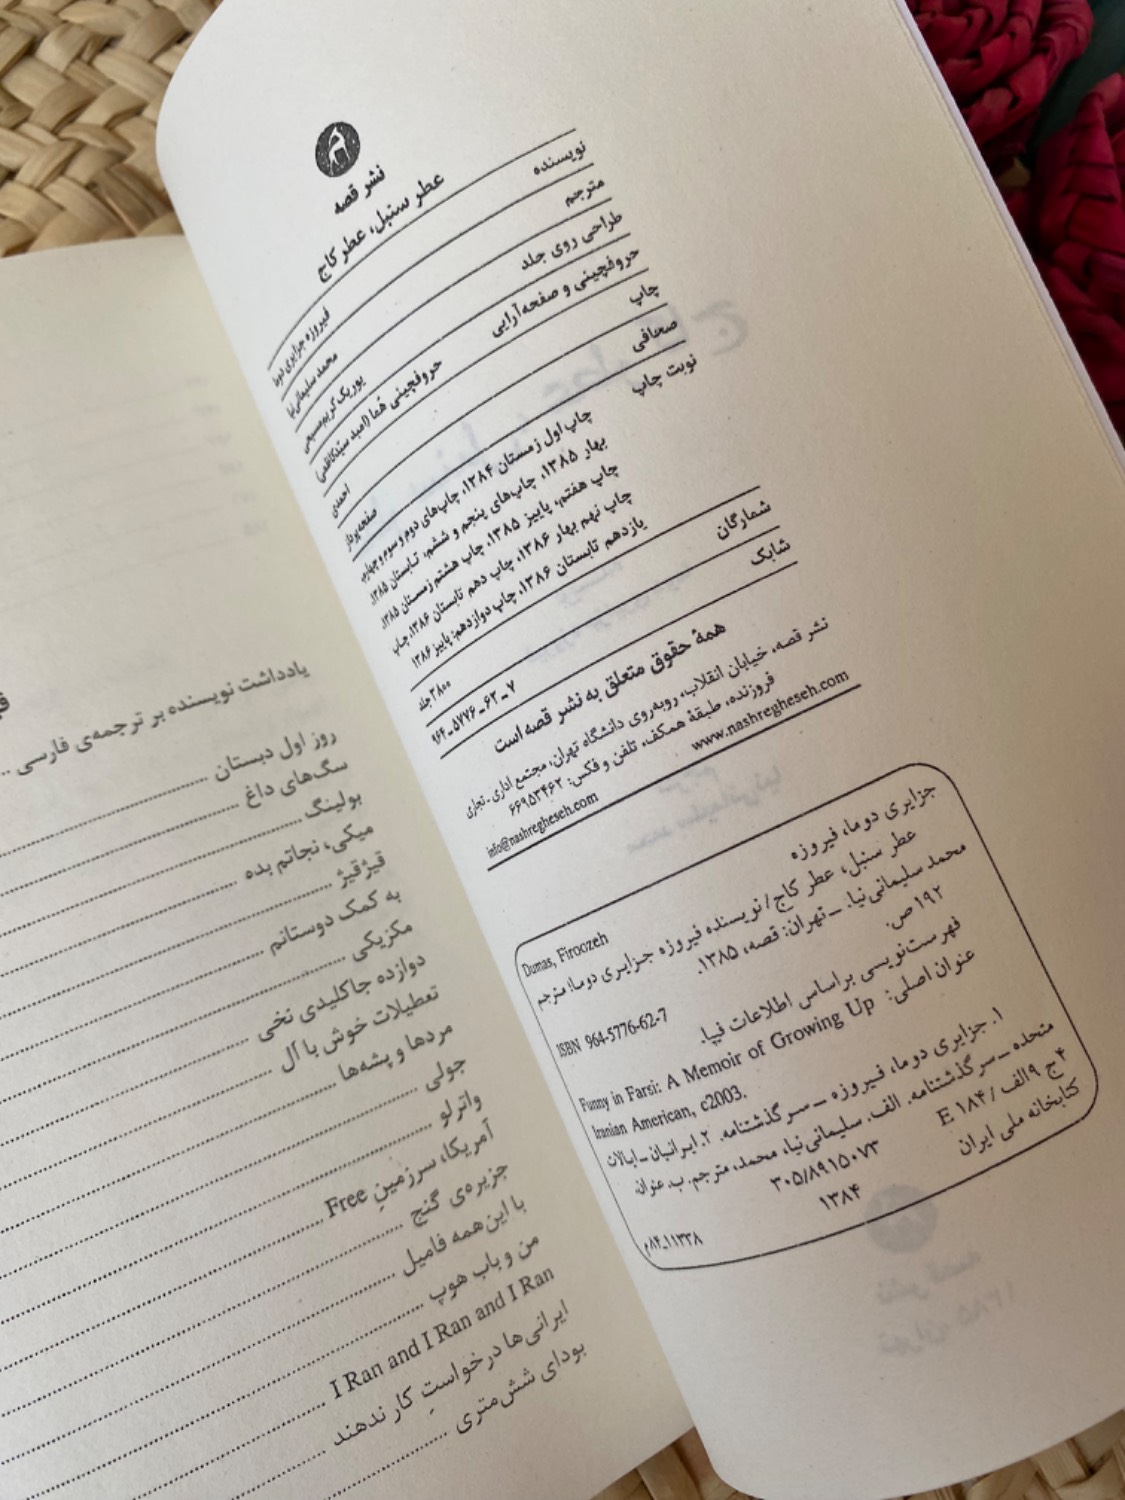 نشر قصه
عطر سنبل، عطر کاج
نویسنده فیروزه جزایری دوما
مترجم محمد سلیمانی‌نیا
طراحی روی جلد یوریک کریم‌مسیحی
حروفچینی و صفحه‌آرایی حروفچینی هُما (امید سیدکاظمی)
چاپ احمدی
صحافی صفحه‌پرداز
نوبت چاپ چاپ اول زمستان ۱۳۸۴، چاپ‌های دوم و سوم و چهارم،
بهار ۱۳۸۵، چاپ‌های پنجم و ششم، تابستان ۱۳۸۵،
چاپ هفتم، پاییز ۱۳۸۵، چاپ هشتم زمستان ۱۳۸۵،
چاپ نهم بهار ۱۳۸۶، چاپ دهم تابستان ۱۳۸۶، چاپ
یازدهم تابستان ۱۳۸۶، چاپ دوازدهم: پاییز ۱۳۸۶
شمارگان ۳۸۰۰ جلد
شابک ۹۶۴-۵۷۷۶-۶۲-۷
همهٔ حقوق متعلق به نشر قصه است
نشر قصه، خیابان انقلاب، روبه‌روی دانشگاه تهران، مجتمع اداری-تجاری
فروزنده، طبقهٔ همکف، تلفن و فکس: ۶۶۹۵۳۴۶۲
www.nashregheseh.com
info@nashregheseh.com
جزایری دوما، فیروزه
Dumas, Firoozeh
عطر سنبل، عطر کاج/ نویسنده فیروزه جزایری دوما؛ مترجم
محمد سلیمانی‌نیا. ـ تهران: قصه، ۱۳۸۵.
۱۹۲ ص.
ISBN 964-5776-62-7
فهرست‌نویسی براساس اطلاعات فیپا.
عنوان اصلی: Funny in Farsi: A Memoir of Growing Up
Iranian American, c2003.
۱. جزایری دوما، فیروزه ـ سرگذشتنامه. ۲. ایرانیان ـ ایالات
متحده ـ سرگذشتنامه. الف. سلیمانی‌نیا، محمد، مترجم. ب. عنوان.
۴ج ۹الف/ E ۱۸۴ ۳۰۵/۸۹۱۵۰۷۳
۱۳۸۴
کتابخانه ملی ایران ۸۴-۱۱۳۳۸م
یادداشت نویسنده بر ترجمه‌ی فارسی
روز اول دبستان
سگ‌های داغ
بولینگ
میکی، نجاتم بده
قیژقیژ
به کمک دوستانم
مکزیکی
دوازده جاکلیدی نخی
تعطیلات خوش با آل
مردها و پشه‌ها
جولی
واترلو
آمریکا، سرزمینِ Free
جزیره‌ی گنج
با این‌همه فامیل
من و باب هوپ
I Ran and I Ran and I Ran
ایرانی‌ها درخواستِ کار ندهند
بودای شش‌متری